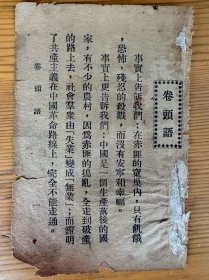 卷頭語
事實上告訴我們：在赤匪的窠里內，只有飢餓
，恐怖，殘忍的殺戮，而沒有安寧和幸福。
事實上更告訴我們：中國是一個生產落後的國
家，有不少的農村，因爲赤匪的擾亂，全走到破產
的路上去，社會羣衆由「失業」變成「無業」；而證明
了共產主義在中國革命路綫上，完全不能走通。
卷頭語